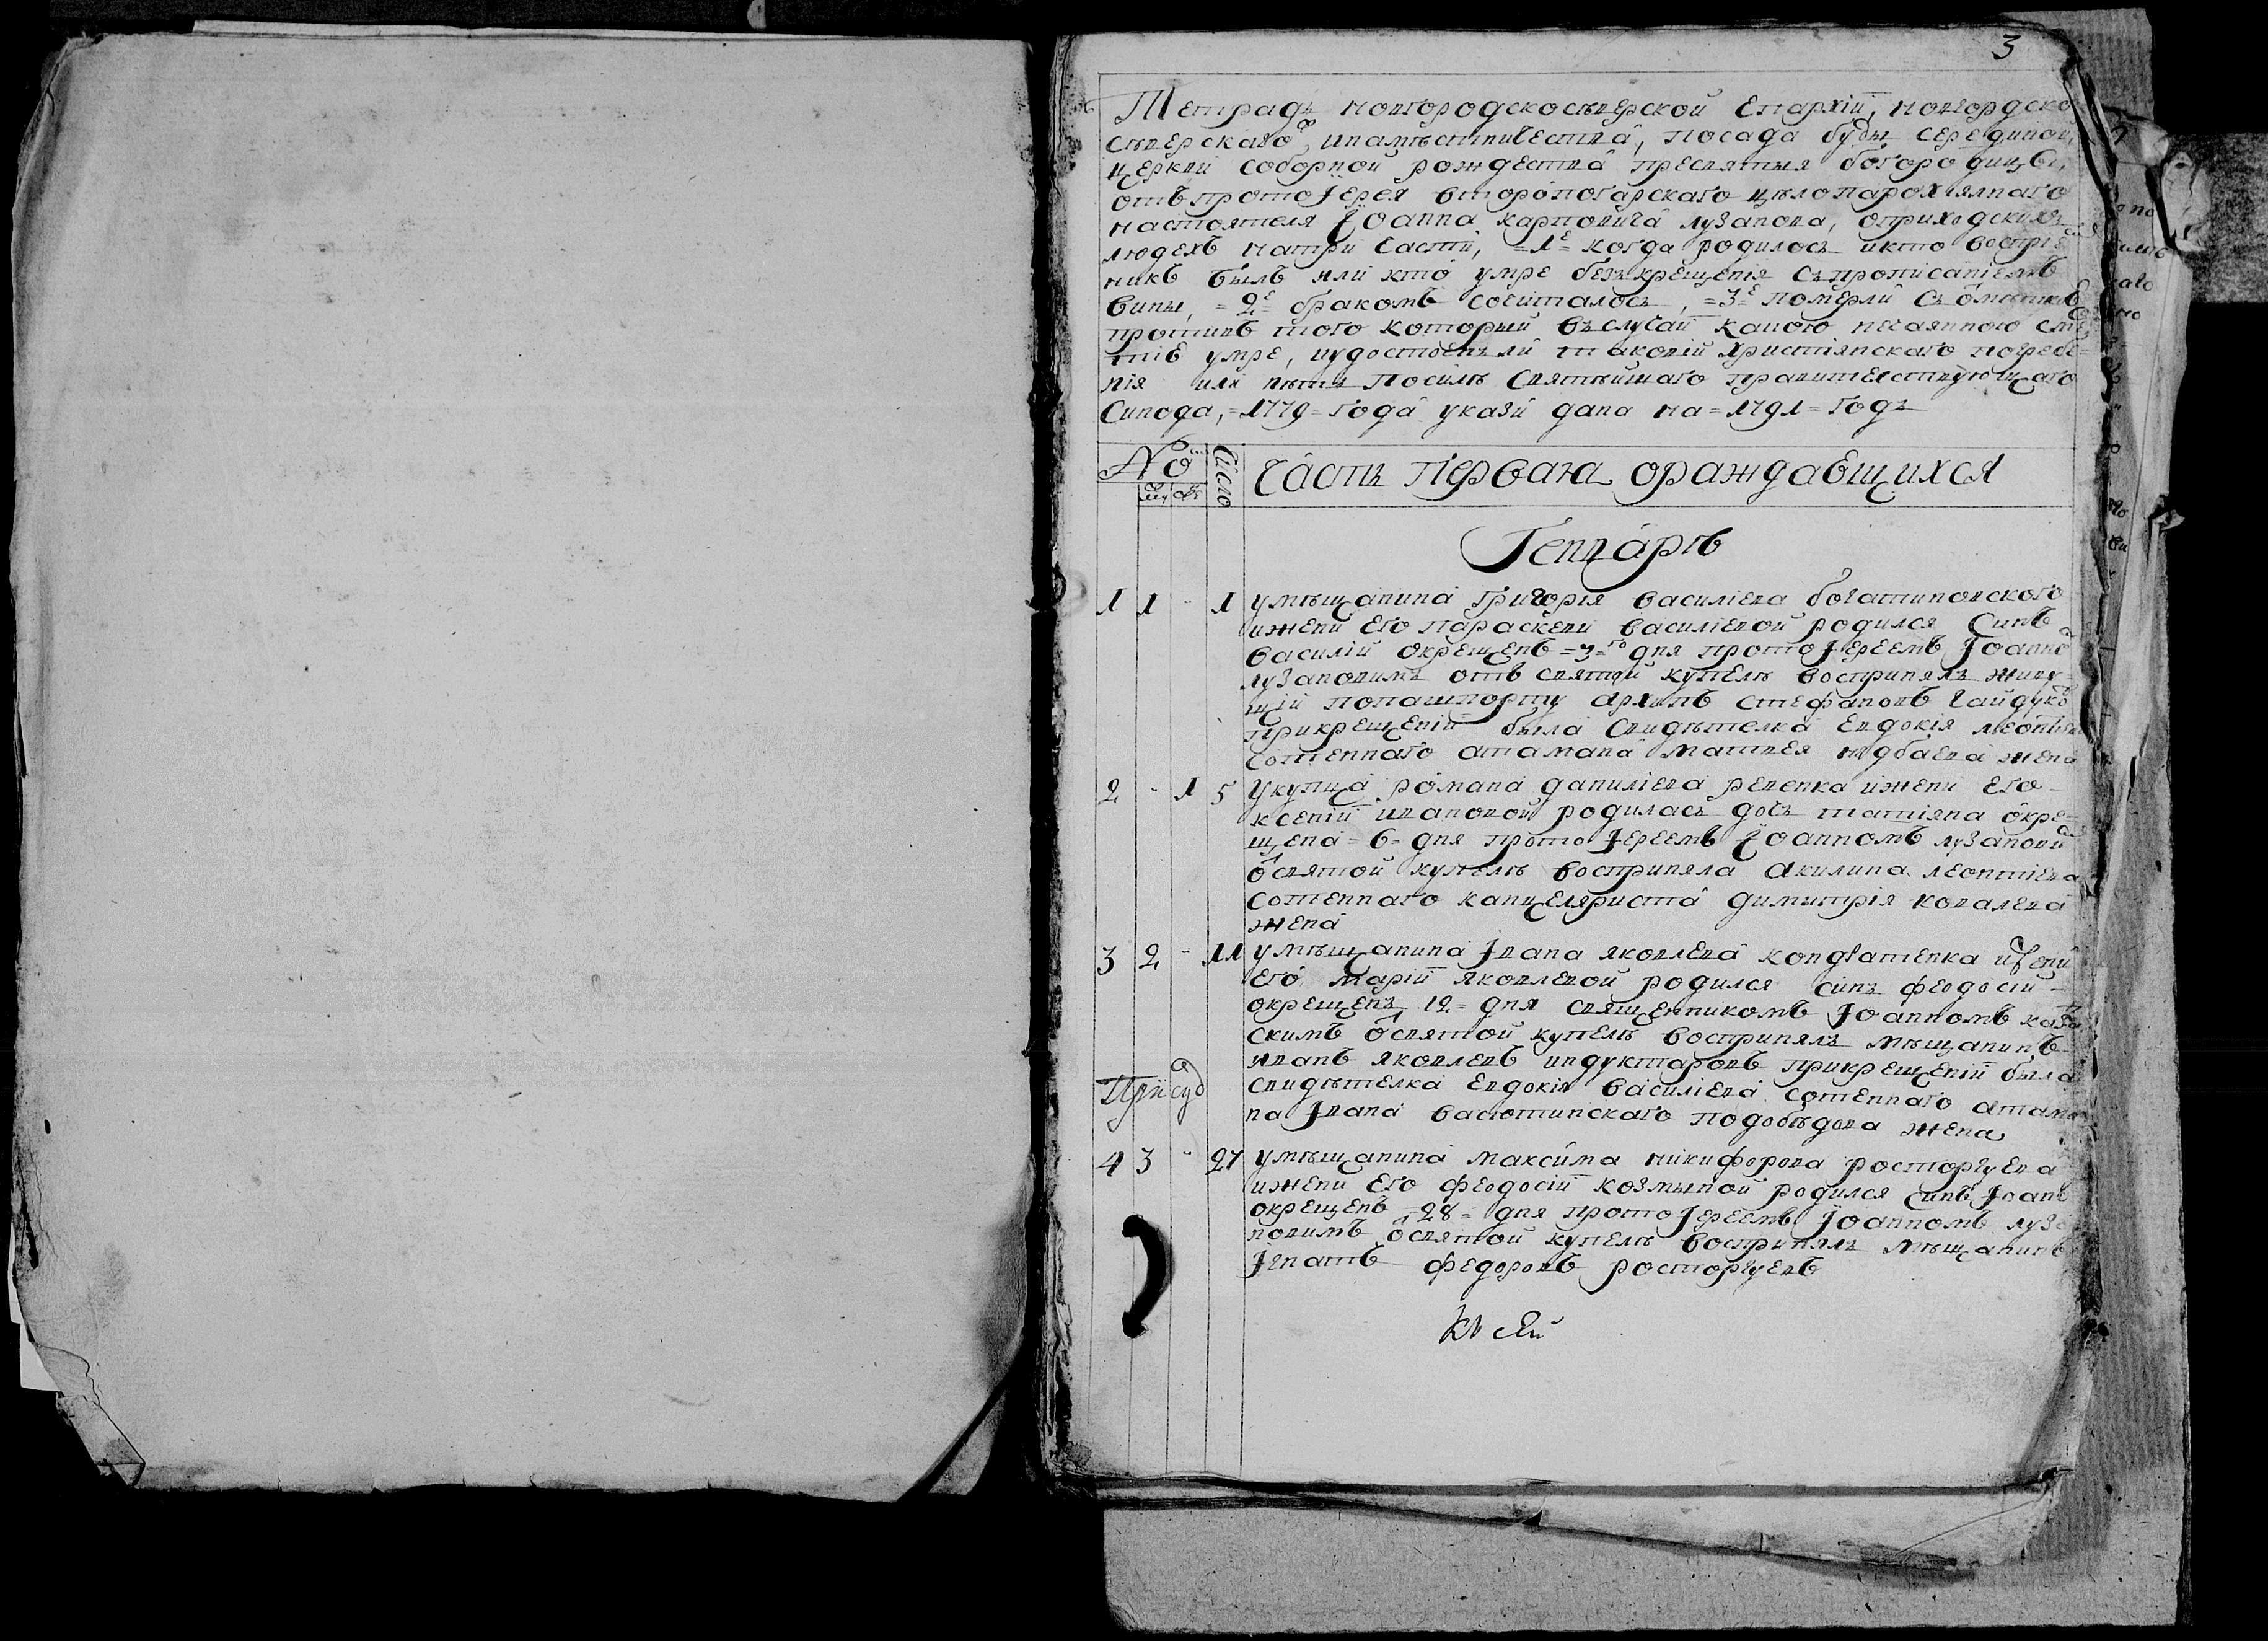 3
Тетрадь новгородскосѣверской Епархіи, новгородско
сѣверскаго намѣстничества, посада буды середи­ной
церкви соборной рождества пресвятыя богородицы,
отъ протоІерея второпогарскаго цѣлопарохиялнаго
настоятеля Іоанна карповича лузанова, оприходскихъ
людехъ натри части, =1е= когда родилось икто воспріе
никъ былъ или кто умре безъ крещенія съ прописаніемъ
вины, =2е= бракомъ сочиталось, =3е= померли съ
противъ того который въ случай какого нечаянного
умре, иудостоенъ ли таковій христіянскаго погребе=
нія или нѣтъ посилѣ Святѣйшаго правителствующаго
Синода, =1779= года указй дана на =1791= годъ
No Число Часть первая ораждавщихся
Генварь
1 1 - 1 умѣщанина григорія василіева богатиновского
ижени его параскеви василіевой родился синъ
василій окрещенъ =3=го дня протоІереемъ Іоанно
лузановимъ отъ святой купелѣ воспринялъ живу
щій попашпорту архипъ стефановъ гайдукъ
прикрещеніи была свидѣтелка Евдокія
сотенного атамана матвея надбаева жена
2 - 1 5 укупца романа даниліева ревенка ижени его
ксеніи ивановой родилась дочь татіяна окре=
щена =6= дня протоІереемъ Іоанномъ лузанови
о святой купелѣ восприняла акилина леонтіева
сотенного канцеляриста димитрія ковалева
жена
3 2 - 11 умѣщанина Івана яковлева кондратенка ижени
его маріи яковлевой родился синъ феодосій
окрещенъ 12= дня священникомъ Іоанномъ
скимъ о святой купелѣ воспринялъ мѣщанинъ
иванъ яковлевъ индуктаровъ прикрещеніи была
При суд свидѣтелка Евдокія василіева сотенного атама
на Івана васютинскаго подобѣдова жена
4 3 - 27 умѣщанина максима никифорова расторгуева
ижени его феодосіи козминой родился синъ Іоанъ
окрещенъ 28= дня протоІереемъ Іоанномъ луза
новимъ о святой купелѣ воспринялъ мѣщанинъ
Ігнатъ федоровъ расторгуевъ